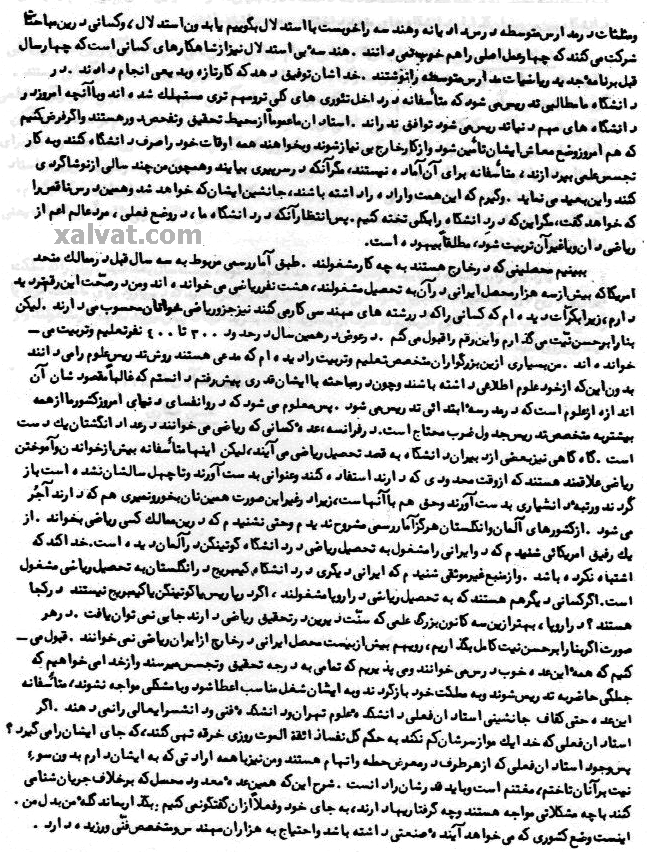 ومثلثات در مدارس متوسطه درس داد یا نه وهندسه راخوبست با استدلال بگوییم یا بدون استدلال ، وکسانی در این مباحثا
شرکت می کنند که چهار عمل اصلی را هم خوب نمی دانند . هندسه بی استدلال نیز از شاهکارهای کسانی است که چهار سال
قبل برنامه جدید ریاضیات مدارس متوسطه را نوشتند . خداشان توفیق دهد که کار تازه وبدیعی انجام دادند . در
دانشگاه ما مطالبی تدریس می شود که متأسفانه در داخل تئوری های کلی تر ومهم تری مستهلک شده اند وباآنچه امروز در
دانشگاه های مهم دنیا تدریس می شود توافق ندراند . استادان ما عموما از محیط تحقیق وتفحص دور هستند واگر فرض کنیم
که هم امروز وضع معاش ایشان تأمین شود واز کار خارج بی نیاز شوند وبخواهند همه اوقات خود را صرف دانشگاه کنند وبه کار
تجسس علمی بپردازند ، متأسفانه برای آن آماده نیستند ، مگر آنکه در سر پیری بیایند وهمچون من چند سالی از نو شاگردی
کنند واین بعید می نماید . وگیرم که این همت واراده را داشته باشند ، جانشین ایشان که خواهد شد وهمین درس ناقص را
که خواهد گفت ، مگر این که در دانشگاه را بکلی تخته کنیم . پس انتظار آنکه در دانشگاه ما ، در وضع فعلی ، مرد عالم اعم از
ریاضی دان ویا غیر آن تربیت شود، مطلقاً بیهوده است .
xalvat.com
ببینیم محصلینی که در خارج هستند به چه کار مشغولند . طبق آمار رسمی مربوط به سه سال قبل در ممالک متحد
امریکا که بیش از سه هزار محصل ایرانی در آن به تحصیل مشغولند ، هشت نفر ریاضی می خوانده اند ومن در صحّت این رقم تردید
دارم ، زیرا بکرّات دیده ام که کسانی را که در رشته های مهندسی کار می کنند نیز جزو ریاضی خوانان محسوب می دارند . لیکن
بنا را بر حسن نیّت می گذارم واین رقم را قبول می کنم . در عوض در همین سال در حدود ۳۰۰ تا ۴۰۰ نفر تعلیم وتربیت می —
خوانده اند . من بسیاری از این بزرگواران متخصص تعلیم وتربیت را دیده ام که مدعی هستند روش تدریس علوم را می دانند
بدون این که از خود علوم اطلاعی داشته باشند وچون در مباحثه با ایشان قدری پیش رفتم دانستم که غالباً مقصودشان آن
اندازه از علوم است که در مدرسه ابتدائی تدریس می شود . پس معلوم می شود که در وانفسای دنیای امروز کشور ما از همه
بیشتر به متخصص تدریس جدول ضرب محتاج است . در فرانسه ، عده کسانی که ریاضی می خوانند در عداد انگشتان یک دست
است . گاه گاهی نیز بعضی از دبیران دانشگاه به قصد تحصیل ریاضی می آیند ، لیکن اینها متأسفانه بیش از خواندن وآموختن
ریاضی علاقمند هستند که از وقت محدودی که دارند استفاده کنند وعنوانی بدست آورند وتا چهل سالشان نشده است باز
گردند ورتبه دانشیاری بدست آورند وحق هم با آنهاست ، زیرا در غیر این صورت همین نان بخور ونمیری هم که دارند آجُر
می شود . از کشورهای آلمان وانگلستان هرگز آمار رسمی مشروح ندیدم وحتی نشنیدم که در این ممالک کسی ریاضی بخواند . از
یک رفیق امریکائی شنیدم که او ایرانی را مشغول به تحصیل ریاضی در دانشگاه گوتینگن در آلمان دیده است . خدا کند که
اشتباه نکرده باشد . واز منبع غیر موثقی شنیدم که ایرانی دیگری در دانشگاه کیمبریج در انگلستان به تحصیل ریاضی مشغول
است . اگر کسانی دیگر هم هستند که به تحصیل ریاضی در اروپا مشغولند ، اگر در پاریس یا گوتینگن یا کیمبریج نیستند در کجا
هستند ؟ در اروپا ، بهتر از این سه کانون بزرگ علمی که سنّت دیرین در تحقیق ریاضی دارند جایی نمی توان یافت . در هر
صورت اگر بنا را بر حسن نیت کامل بگذاریم ، رویهم بیش از بیست محصل ایرانی در خارج از ایران ریاضی نمی خوانند . قبول می —
کنیم که همه این عده خوب درس می خوانند ومی پذیریم که تمامی به درجه تحقیق وتجسس میرسند واز خدا می خواهیم که
جملگی حاضر به تدریس شوند وبه مملکت خود بازگردند وبه ایشان شغل مناسب اعطا شود وبا مشکلی مواجه نشوند ، متأسفانه
این عده حتی کفاف جانشینی استادان فعلی دانشکده علوم تهران ودانشکده فنی ودانشسرایعالی رانمی دهند . اگر
استادان فعلی که خدا یک مو از سرشان کم نکند به حکم کل نفساً ذائقة الموت روزی خرقه تهی کنند ، که جای ایشان را می گیرد ؟
پس وجود استادان فعلی که از هر طرف در معرض حمله واتهام هستند ومن نیز با همه ارادتی که به ایشان دارم بدون سوء
نیت بر آنان تاختم ، مغتنم است وباید قدرشان را دانست . شرح این که همین عده معدود محصل که برخلاف جریان شنا می
کنند با چه مشکلاتی مواجه هستند وچه گرفتاریها دارند ، به جای خود وفعلاً از آن گفتگو نمی کنیم : بگذار بماند گله من بدل من .
اینست وضع کشوری که می خواهد آینده صنعتی داشته باشد واحتیاج به هزاران مهندس ومتخصص فنّی ورزیده دارد .